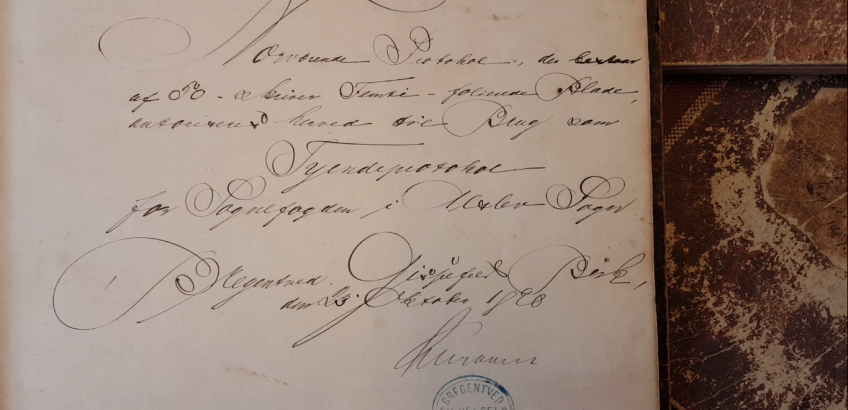 Nærværende Protokol, der bestaar
af 50 - skriver Femti - folierede Blade,
autoriseres herved til Brug som
Tyendeprotokol
for Sognefogden i Alslev Sogn
Bregentved Gisselfeld Birk,
den 23. Oktober
BREGENTVED